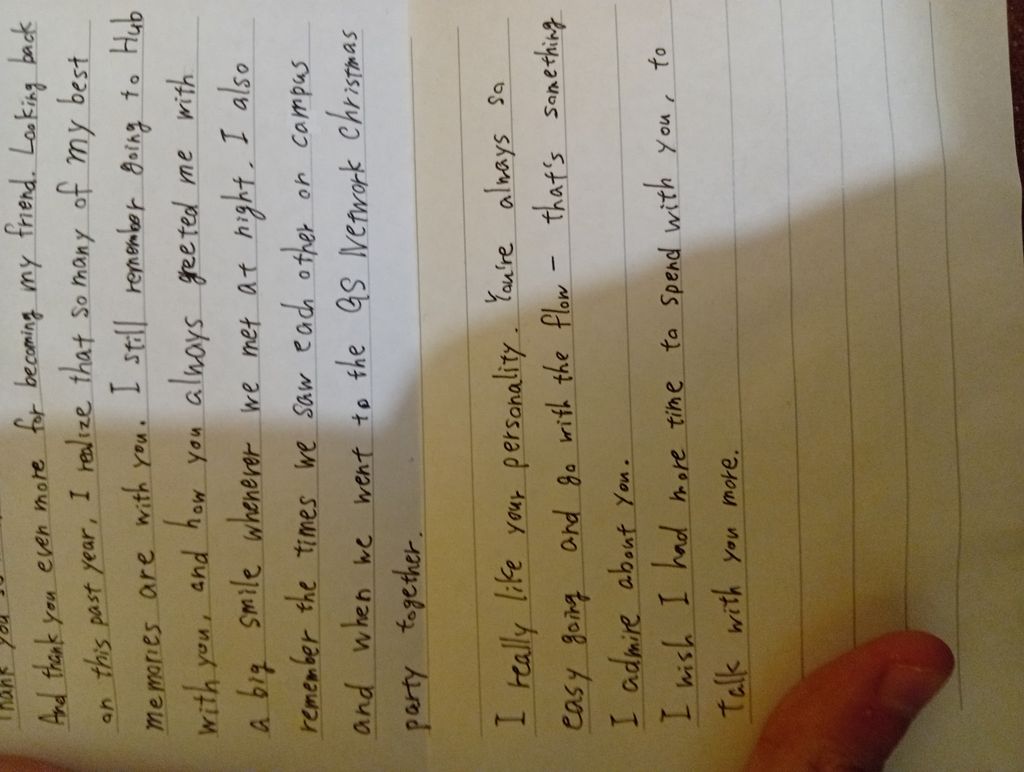 Thank you
And thank you even more for becoming my friend. Looking back
on this past year, I realize that so many of my best
memories are with you. I still remember going to Hub
with you, and how you always greeted me with
a big smile whenever we met at night. I also
remember the times we saw each other on campus
and when we went to the GS Network Christmas
party together.
I really like your personality. You're always so
easy going and go with the flow - that's something
I admire about you.
I wish I had more time to spend with you, to
talk with you more.